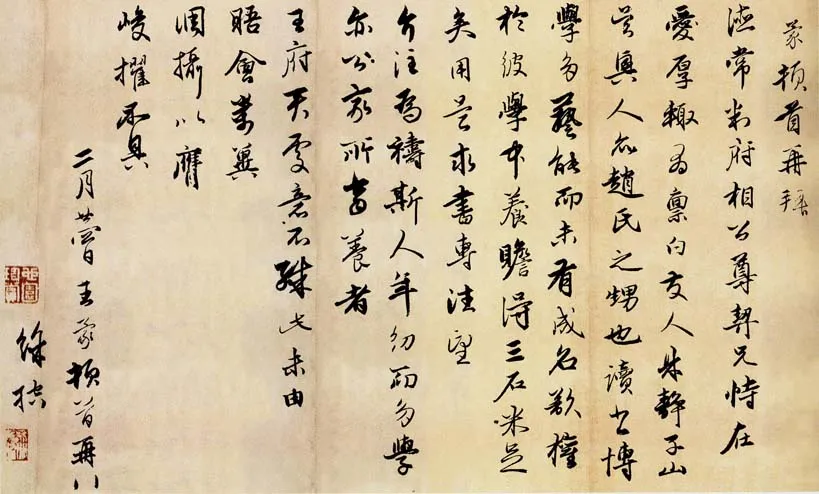 蒙頓首再拜
德常判府相公尊契兄恃在
愛厚輒為稟白友人朱靜子山
吳興人亦趙氏之甥也讀書博
學多藝能而未有成名欲權
於彼學中養贍得三石米足
矣用是求書專注望
介注為禱斯人年幼而多學
亦公家所當養者
王府天意不殊此未由
晤會萬冀
調攝以膺
峻擢不具
二月廿日王蒙頓首再
徐